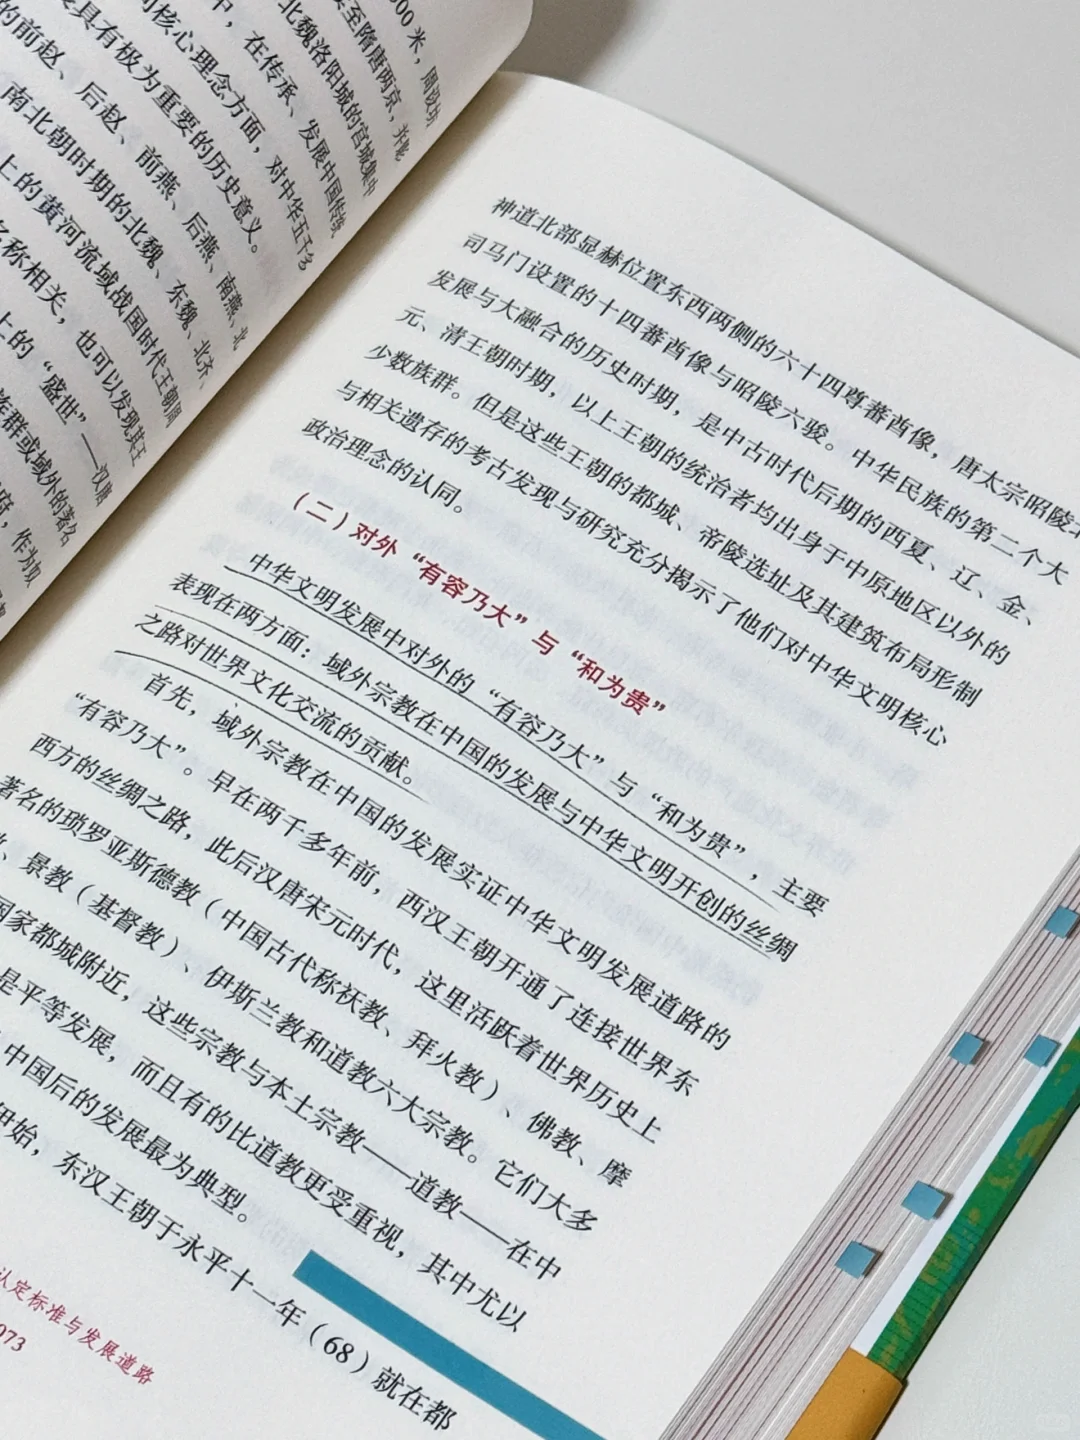 000米，周设坊
续至隋唐两京，并影
北魏洛阳城的宫城集中
中，在传承、发展中国传统
核心理念方面，对中华五千多
具有极为重要的历史意义。
的前赵、后赵、前燕、后燕、南燕、北
南北朝时期的北魏、东魏、北齐、
上的黄河流域战国时代王朝周
名称相关，也可以发现其王
上的“盛世”——汉唐
族群或域外的著名
府，作为汉
神道北部显赫位置东西两侧的六十四尊蕃酋像，唐太宗昭陵北
司马门设置的十四蕃酋像与昭陵六骏。中华民族的第二个大
发展与大融合的历史时期，是中古时代后期的西夏、辽、金、
元、清王朝时期，以上王朝的统治者均出身于中原地区以外的
少数族群。但是这些王朝的都城、帝陵选址及其建筑布局形制
与相关遗存的考古发现与研究充分揭示了他们对中华文明核心
政治理念的认同。
（二）对外“有容乃大”与“和为贵”
中华文明发展中对外的“有容乃大”与“和为贵”，主要
表现在两方面：域外宗教在中国的发展与中华文明开创的丝绸
之路对世界文化交流的贡献。
首先，域外宗教在中国的发展实证中华文明发展道路的
“有容乃大”。早在两千多年前，西汉王朝开通了连接世界东
西方的丝绸之路，此后汉唐宋元时代，这里活跃着世界历史上
著名的琐罗亚斯德教（中国古代称祆教、拜火教）、佛教、摩
、景教（基督教）、伊斯兰教和道教六大宗教。它们大多
国家都城附近，这些宗教与本土宗教——道教——在中
是平等发展，而且有的比道教更受重视，其中尤以
中国后的发展最为典型。
伊始，东汉王朝于永平十一年（68）就在都
认定标准与发展道路
073